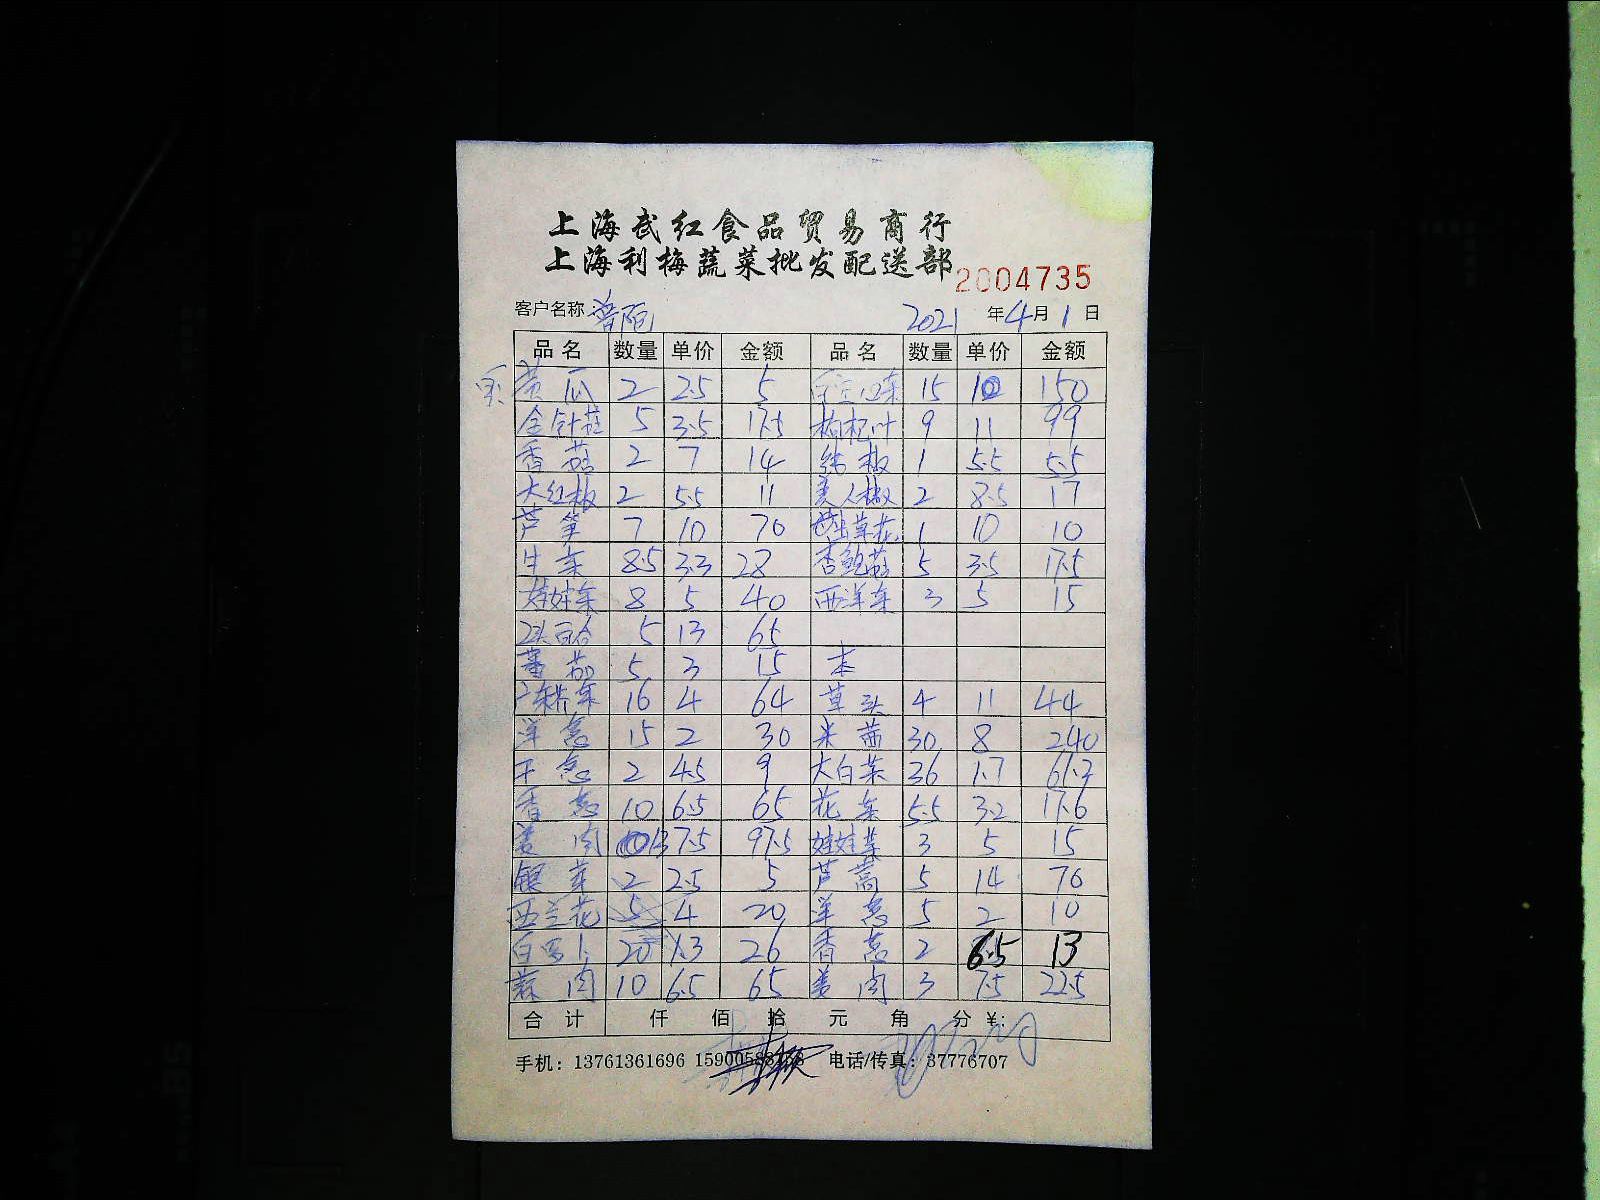 上海武红食品贸易商行
上海利梅蔬菜批发配送部
2004735
客户名称: 普陀 2021 年 4 月 1 日
品名 数量 单价 金额 品名 数量 单价 金额
黄瓜 2 2.5 5 15 10 150
金针菇 5 3.5 17.5 枸杞叶 9 11 99
香菇 2 7 14 线椒 1 5.5 5.5
大红椒 2 5.5 11 美人椒 2 8.5 17
芦笋 7 10 70 虫草花 1 10 10
生菜 8.5 3.3 28 杏鲍菇 5 3.5 17.5
娃娃菜 8 5 40 西洋菜 3 5 15
2头百合 5 13 65
蕃茄 5 3 15 本
16 4 64 草头 4 11 44
洋葱 15 2 30 米苋 30 8 240
干葱 2 4.5 9 大白菜 36 1.7 61.2
香葱 10 6.5 65 花菜 5.5 3.2 17.6
姜肉 13 7.5 97.5 娃娃菜 3 5 15
银芽 2 2.5 5 芦蒿 5 14 70
西兰花 5 4 20 洋葱 5 2 10
白罗卜 20 1.3 26 香葱 2 6.5 13
蒜肉 10 6.5 65 姜肉 3 7.5 22.5
合计 仟 佰 拾 元 角 分 ¥:
手机: 13761361696 电话/传真: 37776707